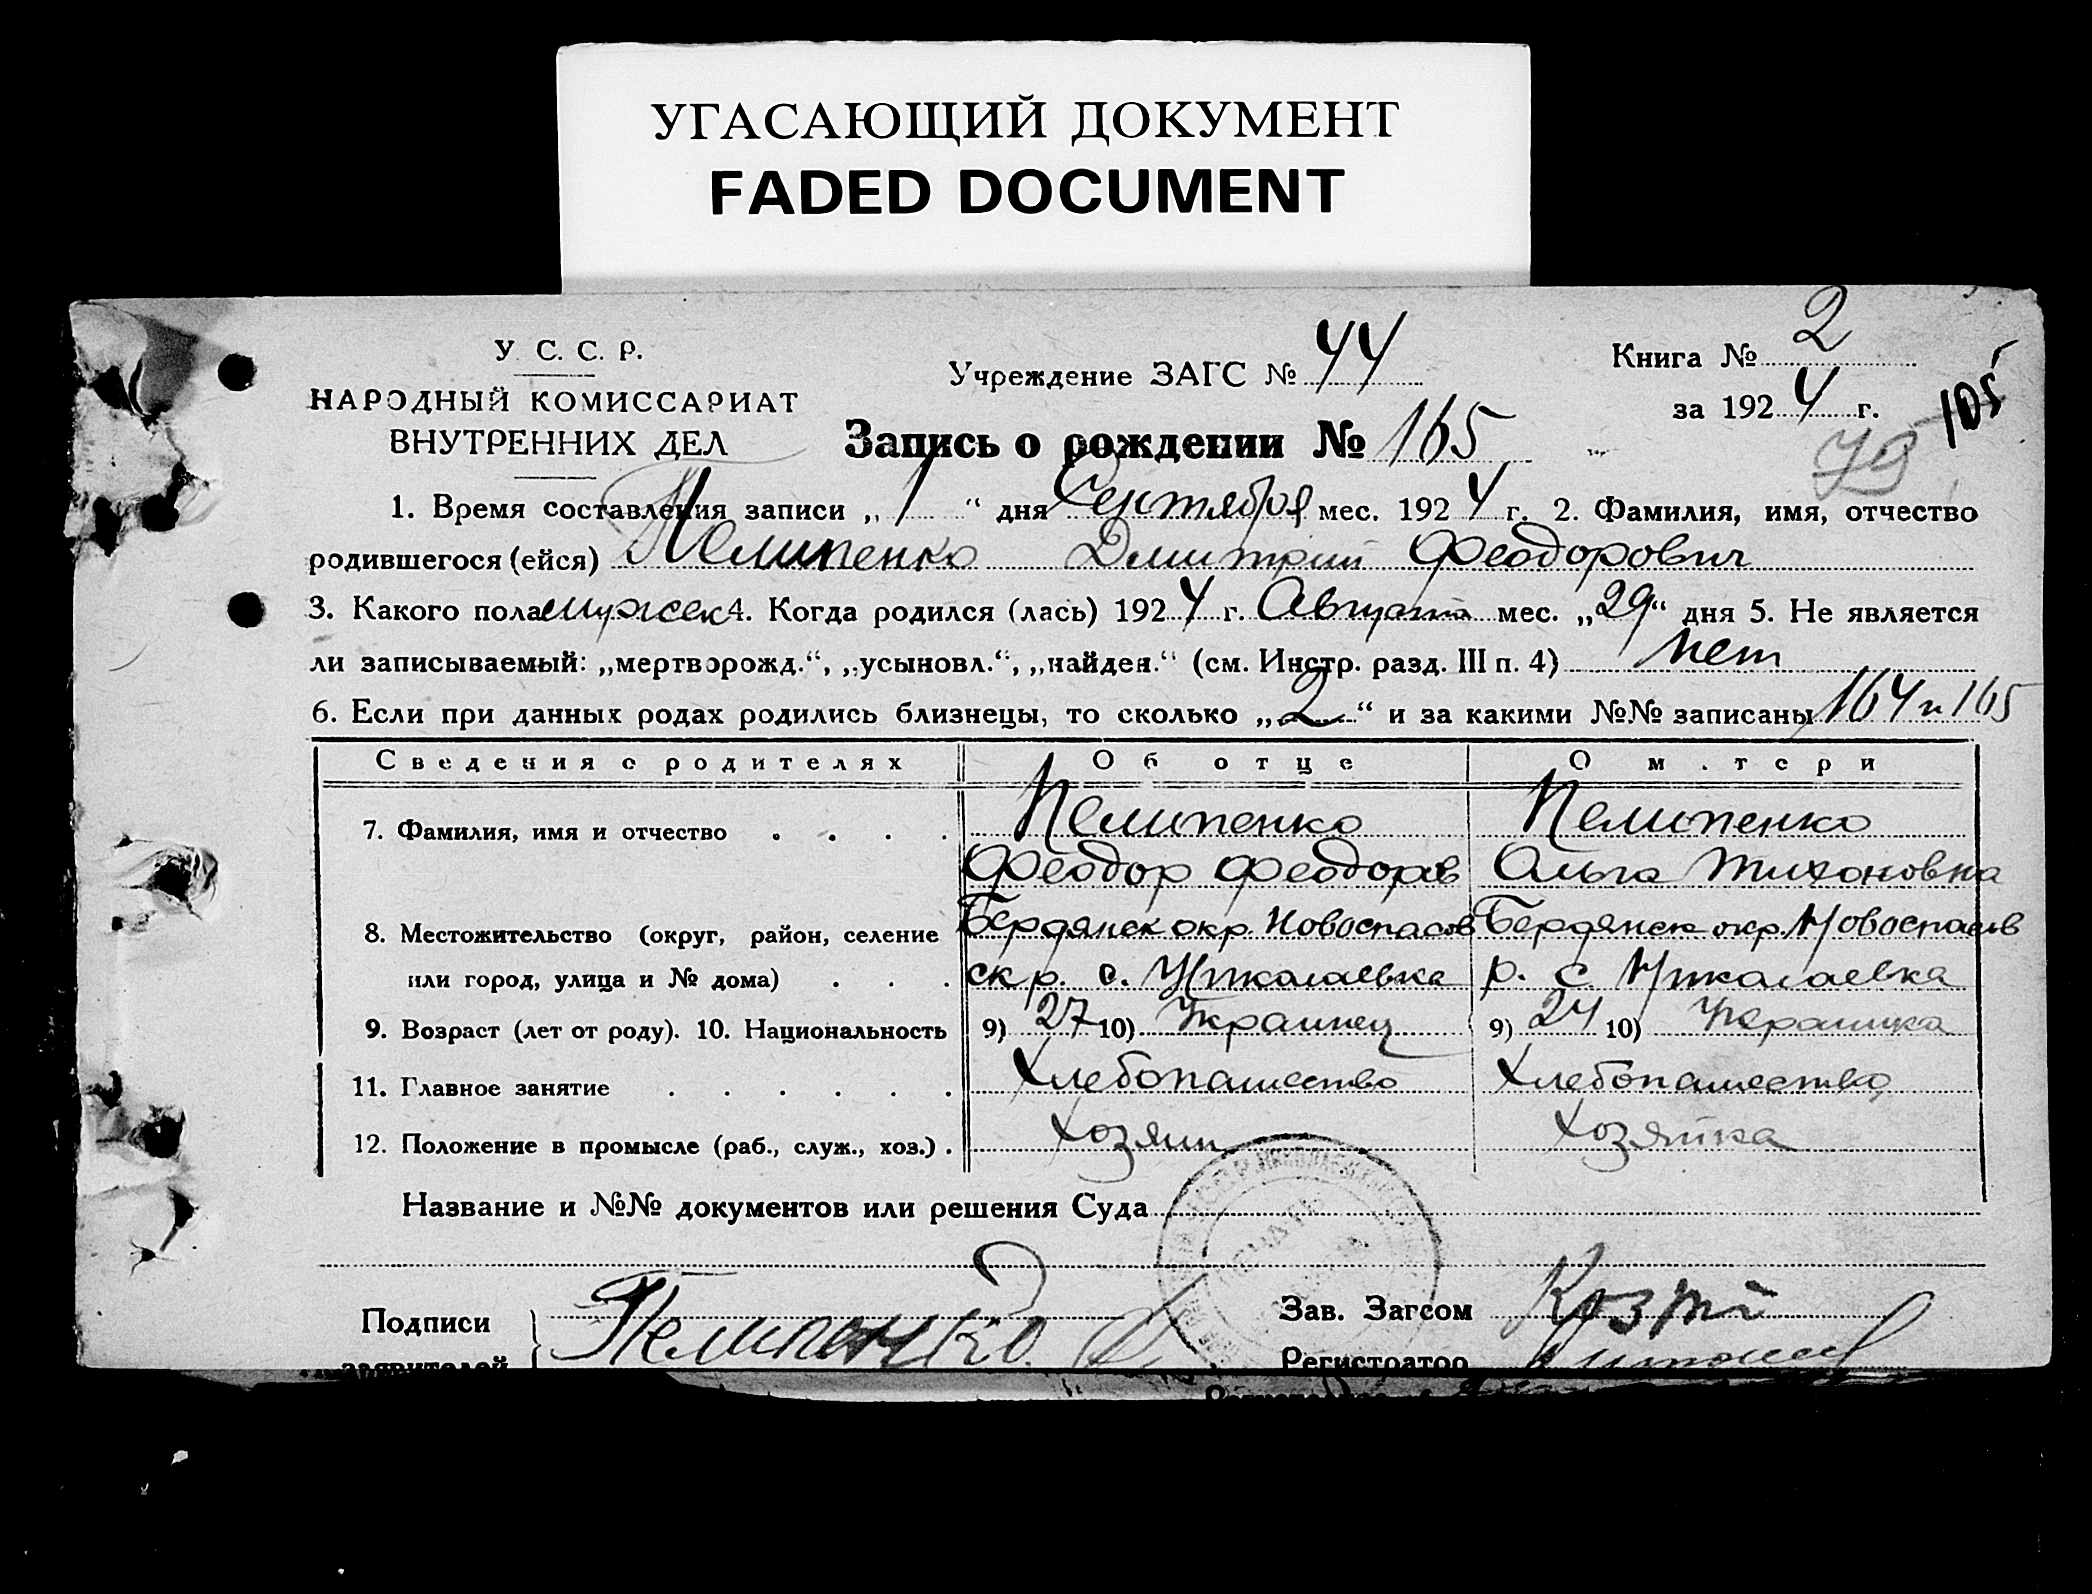 УГАСАЮЩИЙ ДОКУМЕНТ
FADED DOCUMENT
У. С. С. Р.
НАРОДНЫЙ КОМИССАРИАТ
ВНУТРЕННИХ ДЕЛ
Учреждение ЗАГС № 44
Книга № 2
за 1924 г.
105
79
Запись о рождении № 165
1. Время составления записи „ 1 “ дня Сентября мес. 1924 г. 2. Фамилия, имя, отчество
родившегося (ейся) Пелипенко Дмитрий Феодорович
3. Какого пола мужск 4. Когда родился (лась) 1924 г. Августа мес. „29“ дня 5. Не является
ли записываемый: „мертворожд.“, „усыновл.“, „найден.“ (см. Инстр. разд. III п. 4) нет
6. Если при данных родах родились близнецы, то сколько „2“ и за какими №№ записаны 164 и 165
Сведения о родителях Об отце О м.тери
7. Фамилия, имя и отчество . . . . Пелипенко Пелипенко
Феодор Феодоров Ольга Тихоновна
8. Местожительство (округ, район, селение Бердянск окр. Новоспасов Бердянск окр. Новоспасов
или город, улица и № дома) . . . ск р. с. Николаевка р. с. Николаевка
9. Возраст (лет от роду). 10. Национальность 9) 27 10) Украинец 9) 24 10) Украинка
11. Главное занятие . . . . . . Хлебопашество Хлебопашество
12. Положение в промысле (раб., служ., хоз.) . хозяин хозяйка
Название и №№ документов или решения Суда
Подписи Пелипенко
заявителей
Зав. Загсом
Регистратор